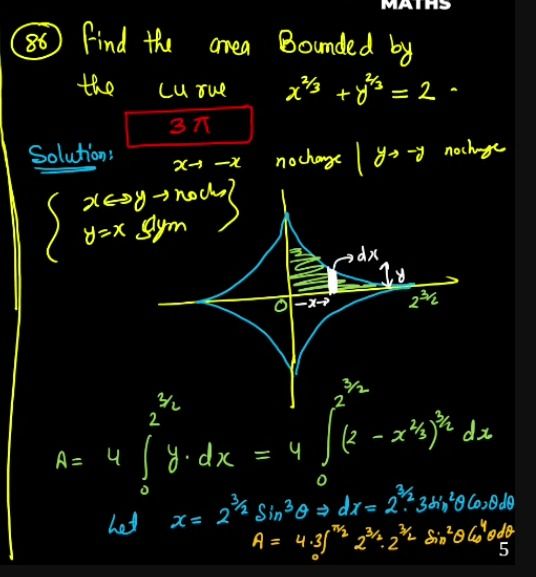 MATHS
(86) find the area Bounded by
the curve x^(2/3) + y^(2/3) = 2.
3π
Solution: x → -x nochange | y → -y nochange
{ x ↔ y → noch }
{ y=x sym }
dx
y
O -x→ 2^(3/2)
A = 4 ∫_0^(2^(3/2)) y·dx = 4 ∫_0^(2^(3/2)) (2 - x^(2/3))^(3/2) dx
Let x = 2^(3/2) Sin³θ ⇒ dx = 2^(3/2)·3sin²θ Cosθ dθ
A = 4·3∫_0^(π/2) 2^(3/2)·2^(3/2) Sin²θ Cos⁴θ dθ
5